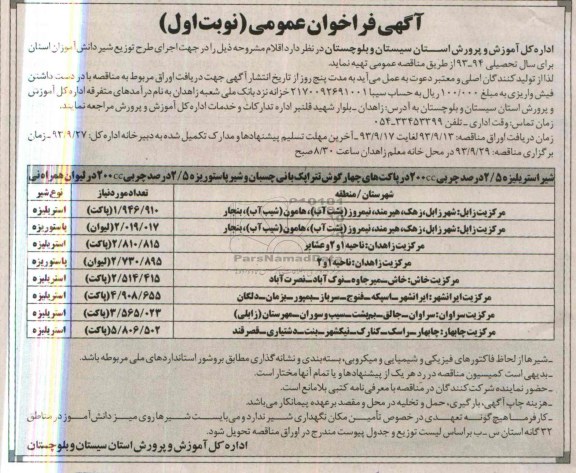 آگهی فراخوان عمومی (نوبت اول)
اداره کل آموزش و پرورش استان سیستان و بلوچستان در نظر دارد اقلام مشروحه ذیل را در جهت اجرای طرح توزیع شیر دانش آموزان استان
برای سال تحصیلی ۹۴ـ۹۳ از طریق مناقصه عمومی تهیه نماید.
لذا از تولیدکنندگان اصلی و معتبر دعوت به عمل می‌آید به مدت پنج روز از تاریخ انتشار آگهی جهت دریافت اوراق مربوط به مناقصه با در دست داشتن
فیش واریزی به مبلغ ۱۰۰/۰۰۰ ریال به حساب سیبا ۲۱۷۰۰۹۲۶۹۱۰۰۱ خزانه نزد بانک ملی شعبه زاهدان به نام درآمدهای متفرقه اداره کل آموزش
و پرورش استان سیستان و بلوچستان به آدرس: زاهدان ـ بلوار شهید قلنبر اداره تدارکات و خدمات اداره کل آموزش و پرورش مراجعه نمایند.
زمان تماس: وقت اداری ـ تلفن ۳۳۴۵۳۳۹۹ـ۰۵۴
زمان دریافت اوراق مناقصه: ۹۳/۹/۱۳ لغایت ۹۳/۹/۱۷ ـ آخرین مهلت تسلیم پیشنهادها و مدارک تکمیل شده به دبیرخانه اداره کل: ۹۳/۹/۲۷ ـ زمان
برگزاری مناقصه: ۹۳/۹/۲۹ در محل خانه معلم زاهدان ساعت ۸/۳۰ صبح
شیر استریلیزه ۲/۵ درصد چربی ۲۰۰cc در پاکت‌های چهارگوش تتراپک با نی چسبان و شیر پاستوریزه ۲/۵ درصد چربی ۲۰۰cc در لیوان همراه نی
شهرستان / منطقه تعداد مورد نیاز نوع شیر
مرکزیت زابل: شهر زابل، زهک، هیرمند، نیمروز (پشت آب)، هامون (شیب آب)، بنجار ۱/۹۴۶/۹۱۰ (پاکت) استریلیزه
مرکزیت زابل: شهر زابل، زهک، هیرمند، نیمروز (پشت آب)، هامون (شیب آب)، بنجار ۲/۰۱۹/۰۱۷ (لیوان) پاستوریزه
مرکزیت زاهدان: ناحیه ۱ و ۲ و عشایر ۲/۸۱۰/۸۱۵ (پاکت) استریلیزه
مرکزیت زاهدان: ناحیه ۱ و ۲ ۲/۷۳۰/۸۹۵ (لیوان) پاستوریزه
مرکزیت خاش: خاش ـ میرجاوه ـ نوک آباد ـ نصرت آباد ۲/۵۱۴/۴۱۵ (پاکت) استریلیزه
مرکزیت ایرانشهر: ایرانشهر ـ اسپکه ـ فنوج ـ سرباز ـ بمپور ـ بزمان ـ دلگان ۴/۹۰۸/۶۵۵ (پاکت) استریلیزه
مرکزیت سراوان: سراوان ـ جالق ـ بم‌پشت ـ سیب و سوران ـ مهرستان (زابلی) ۳/۵۶۵/۰۲۳ (پاکت) استریلیزه
مرکزیت چابهار: چابهار ـ راسک ـ کنارک ـ نیکشهر ـ بنت ـ دشتیاری ـ قصرقند ۵/۸۰۶/۵۰۲ (پاکت) استریلیزه
ـ شیرها از لحاظ فاکتورهای فیزیکی و شیمیایی و میکروبی، بسته‌بندی و نشانه‌گذاری مطابق بروشور استانداردهای ملی مربوطه باشد.
ـ بدیهی است کمیسیون مناقصه در رد هر یک از پیشنهادها و یا تمام آنها مختار است.
ـ حضور نماینده شرکت کنندگان در مناقصه با معرفی‌نامه کتبی بلامانع است.
ـ هزینه چاپ آگهی، بارگیری، حمل و تخلیه در محل و مقصد بر عهده پیمانکار می‌باشد.
ـ کارفرما هیچ گونه تعهدی در خصوص تأمین مکان نگهداری شیر ندارد و می‌بایست شیرها روی میز دانش‌آموز در مناطق
۳۲گانه استان س ـ ب براساس لیست توزیع و جدول پیوست مندرج در اوراق مناقصه تحویل شود.
اداره کل آموزش و پرورش استان سیستان و بلوچستان